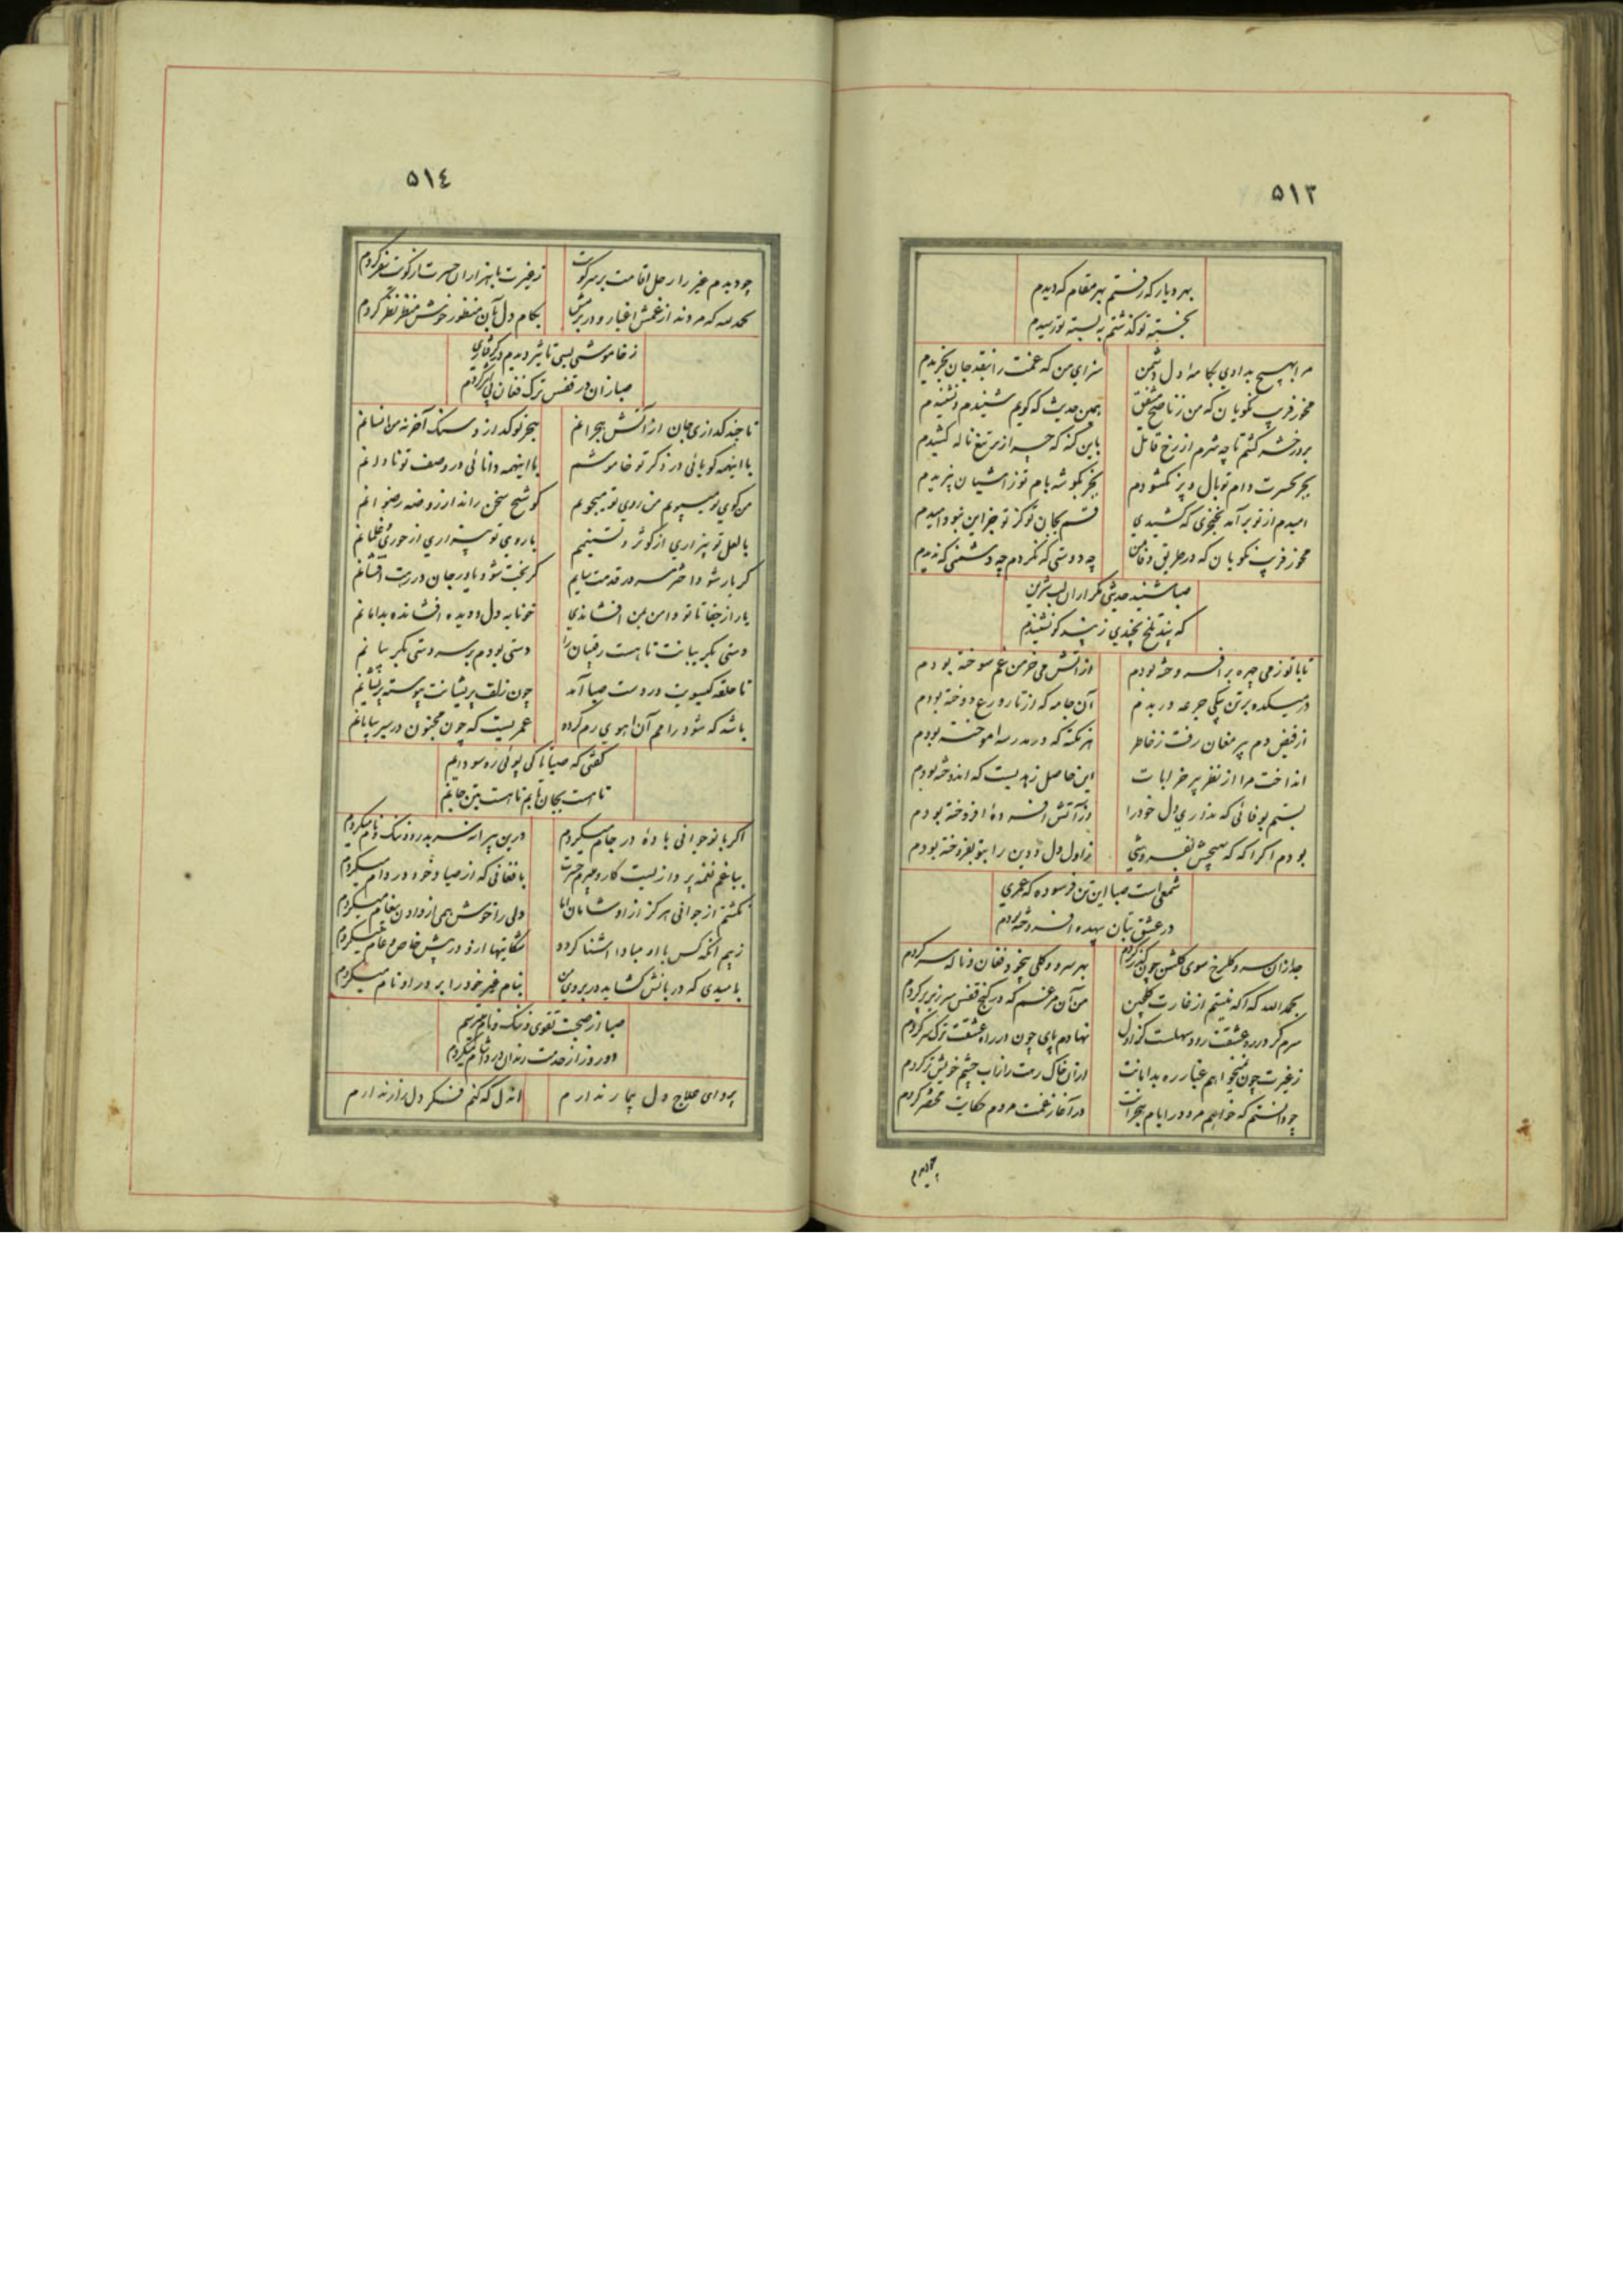 ۵۱۳
بهر دیار که رفتم بهر مقام که دیدم
بخسته تو گذشتم به بسته تو رسیدم
مرا بهیچ بدادی بکامه دل دشمن
سزای من که غمت را بنقد جان بخریدم
مخور فریب نکویان که من ز ناصح مشفق
همین حدیث که گویم شنیدم و نشنیدم
بروز حشر کشم تا چه شرم از رخ قاتل
باین گنه که چرا زیر تیغ ناله کشیدم
بجز بحسرت دام تو بال و پر نگشودم
بجز بگوشه بام تو ز آشیان نپریدم
امیدم از تو برآمد بخنجری که کشیدی
قسم بجان تو کز تو جز این نبود امیدم
مخور فریب نکویان که در طریق وفا من
چه دوستی که نکردم چه دشمنی که ندیدم
صبا شنید حدیثی مگر از آن لب شیرین
که پند تلخ بچندی ز پندگو نشنیدم
تا با تو ز می چهره برافروخته بودم
از آتش می خرمن غم سوخته بودم
در میکده برتن بیکی جرعه دریدم
آن جامه که از تار ورع دوخته بودم
از فیض دم پیر مغان رفت ز خاطر
هر نکته که در مدرسه اموخته بودم
انداخت مرا از نظر پیر خرابات
این حاصل زهدیست که اندوخته بودم
بستم بوفائی که نداری دل خود را
در آتش افسرده افروخته بودم
بودم اگر آگه که بهیچش بفروشی
ز اول دل و دین را بتو نفروخته بودم
شمعی است صبا این تن فرسوده که عمری
در عشق بتان بیهده افروخته بودم
جدا زان سرو گلرخ سوی گلشن چون گذر کردم
بهر سرو و گلی بیخود فغان و ناله سر کردم
بحمدالله که آگه نیستم از غارت گلچین
من آن مرغم که در کنج قفس سر زیر پر کردم
سرم گر در ره عشقت رود سهلست کز اول
نهادم پای چون در راه عشقت ترک سر کردم
ز غیرت چون نمیخواهم غبار ره بدامانت
از آن خاک رهت را ز آب چشم خویش تر کردم
چو دانستم که خواهم مرد در ایام هجرانت
در آغاز غمت مردم حکایت مختصر کردم
چو دیدم
۵۱٤
چو دیدم غیر را رحل اقامت بر سر کویت
ز غیرت با هزاران حسرت از کویت سفر کردم
بحمدالله که مردند از غمش اغیار و در بزمش
بکام دل بآن منظور خوش منظر نظر کردم
ز خاموشی بسی تاثیر دیدم در گرفتاری
صبا زان در قفس ترک فغان بی اثر کردم
تا چند گدازی جان از آتش هجرانم
هجر تو گدازد سنک آخر نه من انسانم
با اینهمه گویائی در ذکر تو خاموشم
با اینهمه دانائی در وصف تو نادانم
من کوی تو میپویم من روی تو میجویم
گو شیخ سخن راند از روضه رضوانم
با لعل تو بیزاری از کوثر و تسنیمم
با روی تو بیزاری از حوری و غلمانم
گر یار شود اختر سر در قدمت سایم
گر بخت شود یاور جان در رهت افشانم
یار از جفا تا تو دامن بمن افشاندی
خونابه دل و دیده افشانده بدامانم
دستی بگریبانت تا هست رقیبان را
دستی بودم بر سر دستی بگریبانم
تا حلقه گیسویت در دست صبا آمد
چون زلف پریشانت پیوسته پریشانم
باشد که شود رامم آن اهوی رم کرده
عمریست که چون مجنون در سیر بیابانم
گفتی که صبا تا کی پوئی ره سودایم
تا هست بجان تابم تا هست بتن جانم
اگر با نوجوانی باده در جام میکردم
درین پیرانه سر بدرود ننک و نام میکردم
بباغم نغمه پردازیست کار و میبرم حسرت
بافغانی که از صیاد خود در دام میکردم
نگشتم از جوانی هرگز از او شادمان اما
دلی را خوش همی از دادن پیغام میکردم
ز بیم آنکه کس با او مبادا اشنا گردد
شکایتها از او در پیش خاص و عام میکردم
بامیدی که دربانش گشاید در بروی من
بنام غیر خود را بر در او نام میکردم
صبا از صحبت تقوی و ننک و نام میرسم
دو روز از خدمت رندان درد آشام میکردم
پروای علاج دل بیمار ندارم
آندل که کنم فکر دل زار ندارم